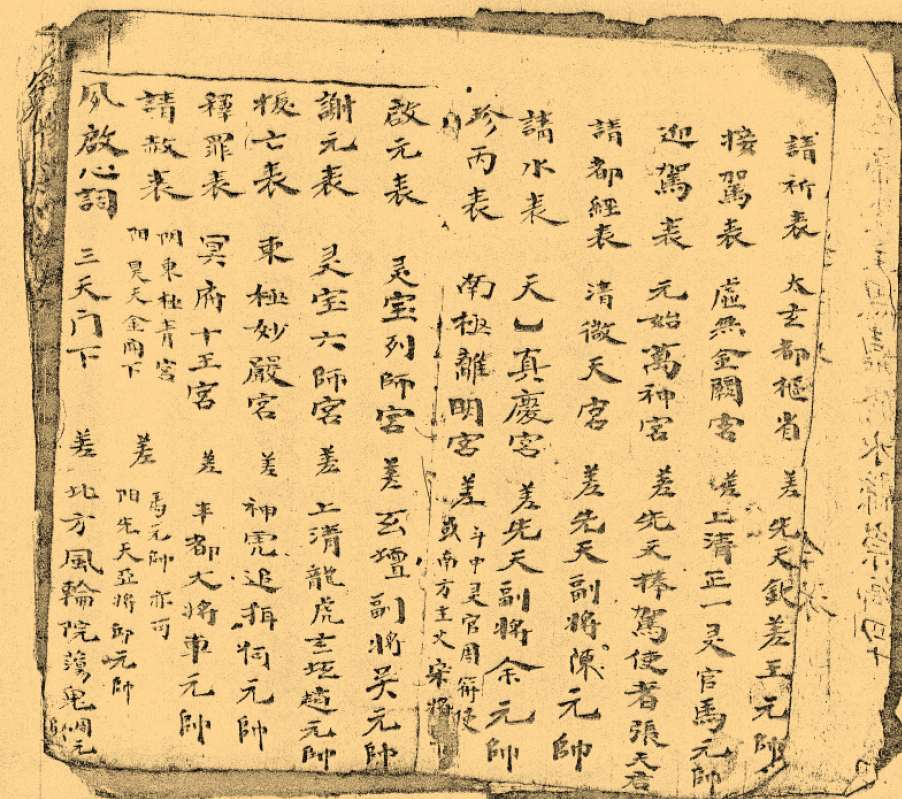 請祈表 太玄都樞省 差先天欽差王元帥
接駕表 虛無金闕宮 差上清正一灵官馬元帥
迎駕表 元始萬神宮 差先天捧駕使者張天君
請都經表 清微天宮 差先天副將陳元帥
請水表 天乙真慶宮 差先天副將余元帥
珍丙表 南極離明宮 差
斗中灵官周
或南方主火宋將
啟元表 灵宝列師宮 差玄壇副將吴元帥
謝元表 灵宝六師宮 差上清龍虎玄坛趙元帥
拔亡表 東極妙嚴宮 差神虎追攝何元帥
釋罪表 冥府十王宮 差丰都大將車元帥
請赦表
阴東極青宮
阳昊天金闕下
差
馬元帥亦可
阳先天亞將邱元帥
夙啟心詞 三天门下 差北方風輪院蕩鬼周元帥